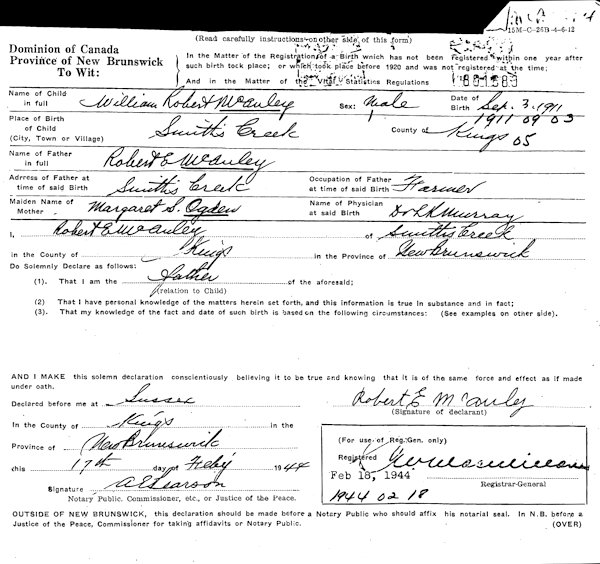 15M-C-26B-4-6-12
(Read carefully instructions on other side of this form)
Dominion of Canada
Province of New Brunswick
To Wit:
In the Matter of the Registration of a Birth which has not been registered within one year after
such birth took place; or which took place before 1920 and was not registered at the time;
And in the Matter of the Vital Statistics Regulations
Name of Child in full William Robert McAuley Sex: Male Date of Birth Sep. 3. 1911
1911 09 03
Place of Birth of Child (City, Town or Village) Smith's Creek County of Kings 05
Name of Father in full Robert E McAuley
Address of Father at time of said Birth Smith's Creek Occupation of Father at time of said Birth Farmer
Maiden Name of Mother Margaret S. Ogden Name of Physician at said Birth Dr Murray
I, Robert E McAuley of Smith's Creek
in the County of Kings in the Province of New Brunswick
Do Solemnly Declare as follows:
(1). That I am the father of the aforesaid;
(relation to Child)
(2) That I have personal knowledge of the matters herein set forth, and this information is true in substance and in fact;
(3). That my knowledge of the fact and date of such birth is based on the following circumstances: (See examples on other side).
AND I MAKE this solemn declaration conscientiously believing it to be true and knowing that it is of the same force and effect as if made
under oath.
Declared before me at Sussex
Robert E McAuley
(Signature of declarant)
In the County of Kings in the
Province of New Brunswick
this 17th day of Feby 1944
Signature
Notary Public. Commissioner, etc, or Justice of the Peace.
(For use of Reg. Gen. only)
Registered
Feb 18, 1944
Registrar-General
1944 02 18
OUTSIDE OF NEW BRUNSWICK, this declaration should be made before a Notary Public who should affix his notarial seal. In N.B. before a
Justice of the Peace, Commissioner for taking affidavits or Notary Public. (OVER)